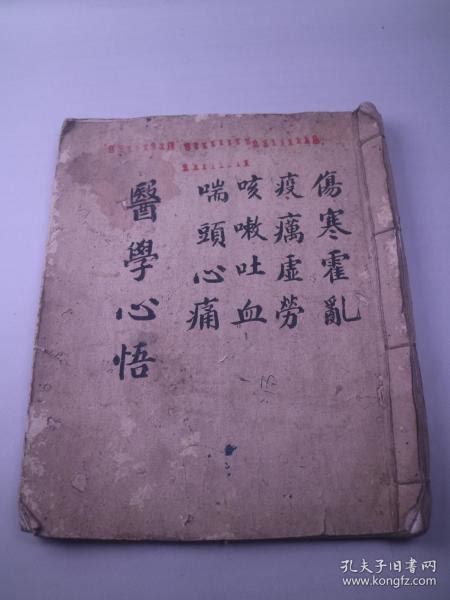 傷寒霍亂
疫癘虛勞
咳嗽吐血
喘頭心痛
醫學心悟
孔夫子旧书网
www.kongfz.com